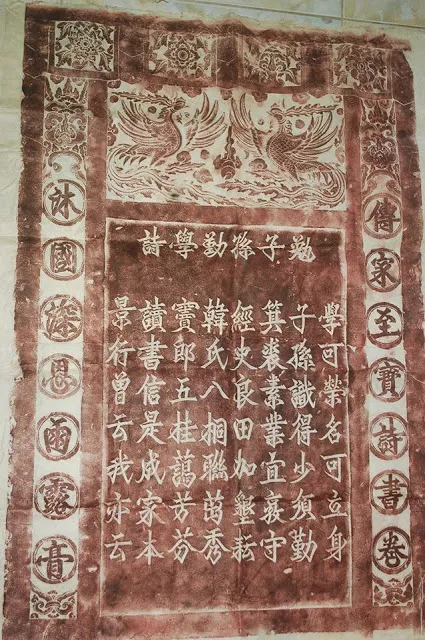 勉子孫勤學詩
傳家至寶詩書卷
學可榮名可立身
子孫識得少須勤
箕裘素業宜守
經史良田加墾耘
韓氏八桐聯秀
竇郎五桂藹芳芬
讀書信是成家本
景行曾云我亦云
沐國深恩雨露膏